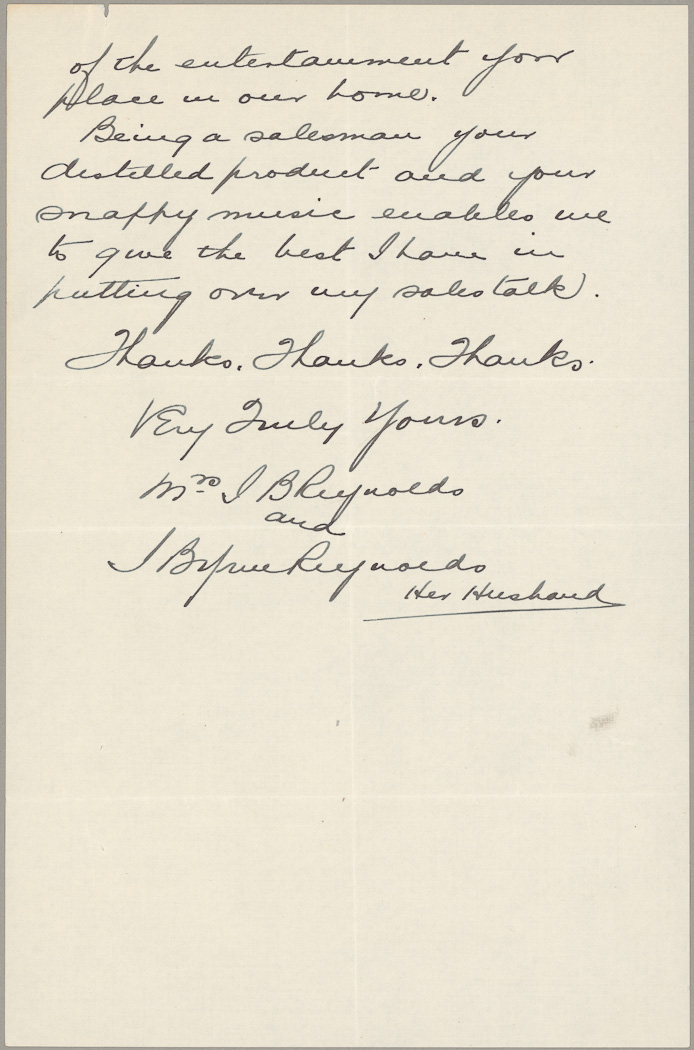 of the entertainment your
place in our home.
Being a salesman your
distilled product and your
snappy music enables me
to give the best I have in
putting over my sales talk.
Thanks. Thanks. Thanks.
Very Truly Yours.
Mrs I B Reynolds
and
I Byrne Reynolds
Her Husband